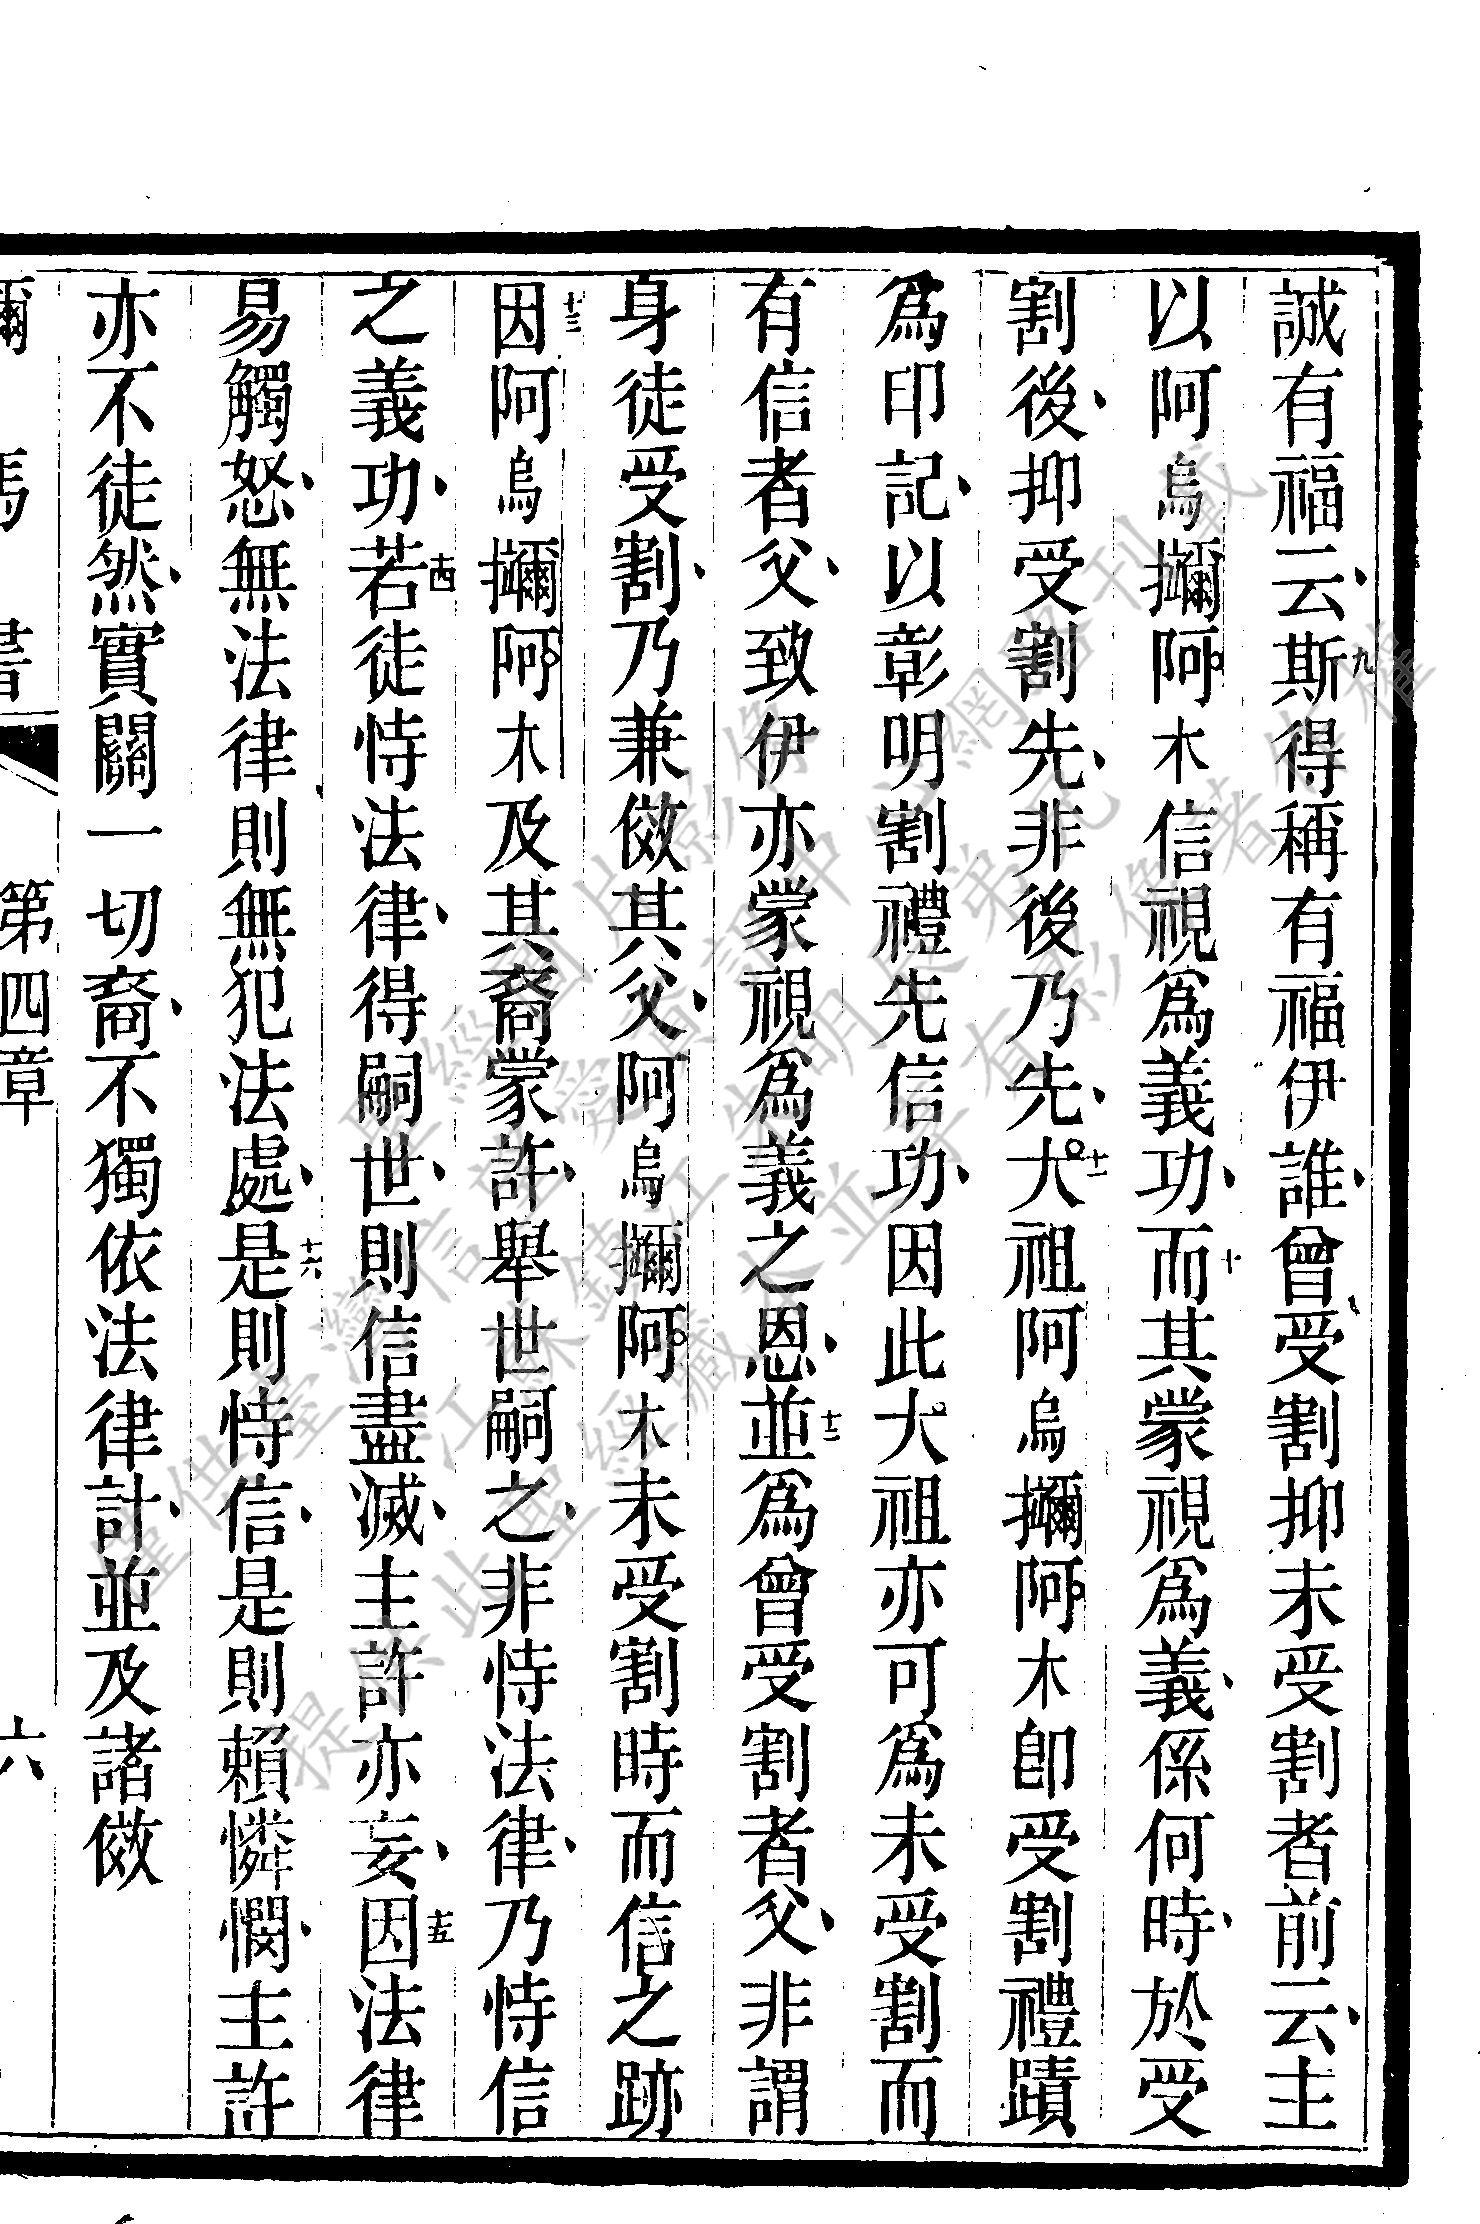 誠有福云、斯九得稱有福伊誰、曾受割抑未受割者前云、主
以阿烏擟阿木信視爲義功、而十其蒙視爲義、係何時、於受
割後、抑受割先、非後乃先、大十一祖阿烏擟阿木卽受割禮蹟
爲印記、以彰明割禮先信功、因此大祖亦可爲未受割而
有信者父、致伊亦蒙視爲義之恩、並十二爲曾受割者父、非謂
身徒受割、乃兼傚其父、阿烏擟阿木未受割時而信之跡
因十三阿烏擟阿木及其裔蒙許、舉世嗣之、非恃法律、乃恃信
之義功、若十四徒恃法律、得嗣世、則信盡滅、主許亦妄、因十五法律
易觸怒、無法律則無犯法處、是十六則恃信、是則賴憐憫、主許
亦不徒然、實關一切裔、不獨依法律計、並及諸傚
第四章
六